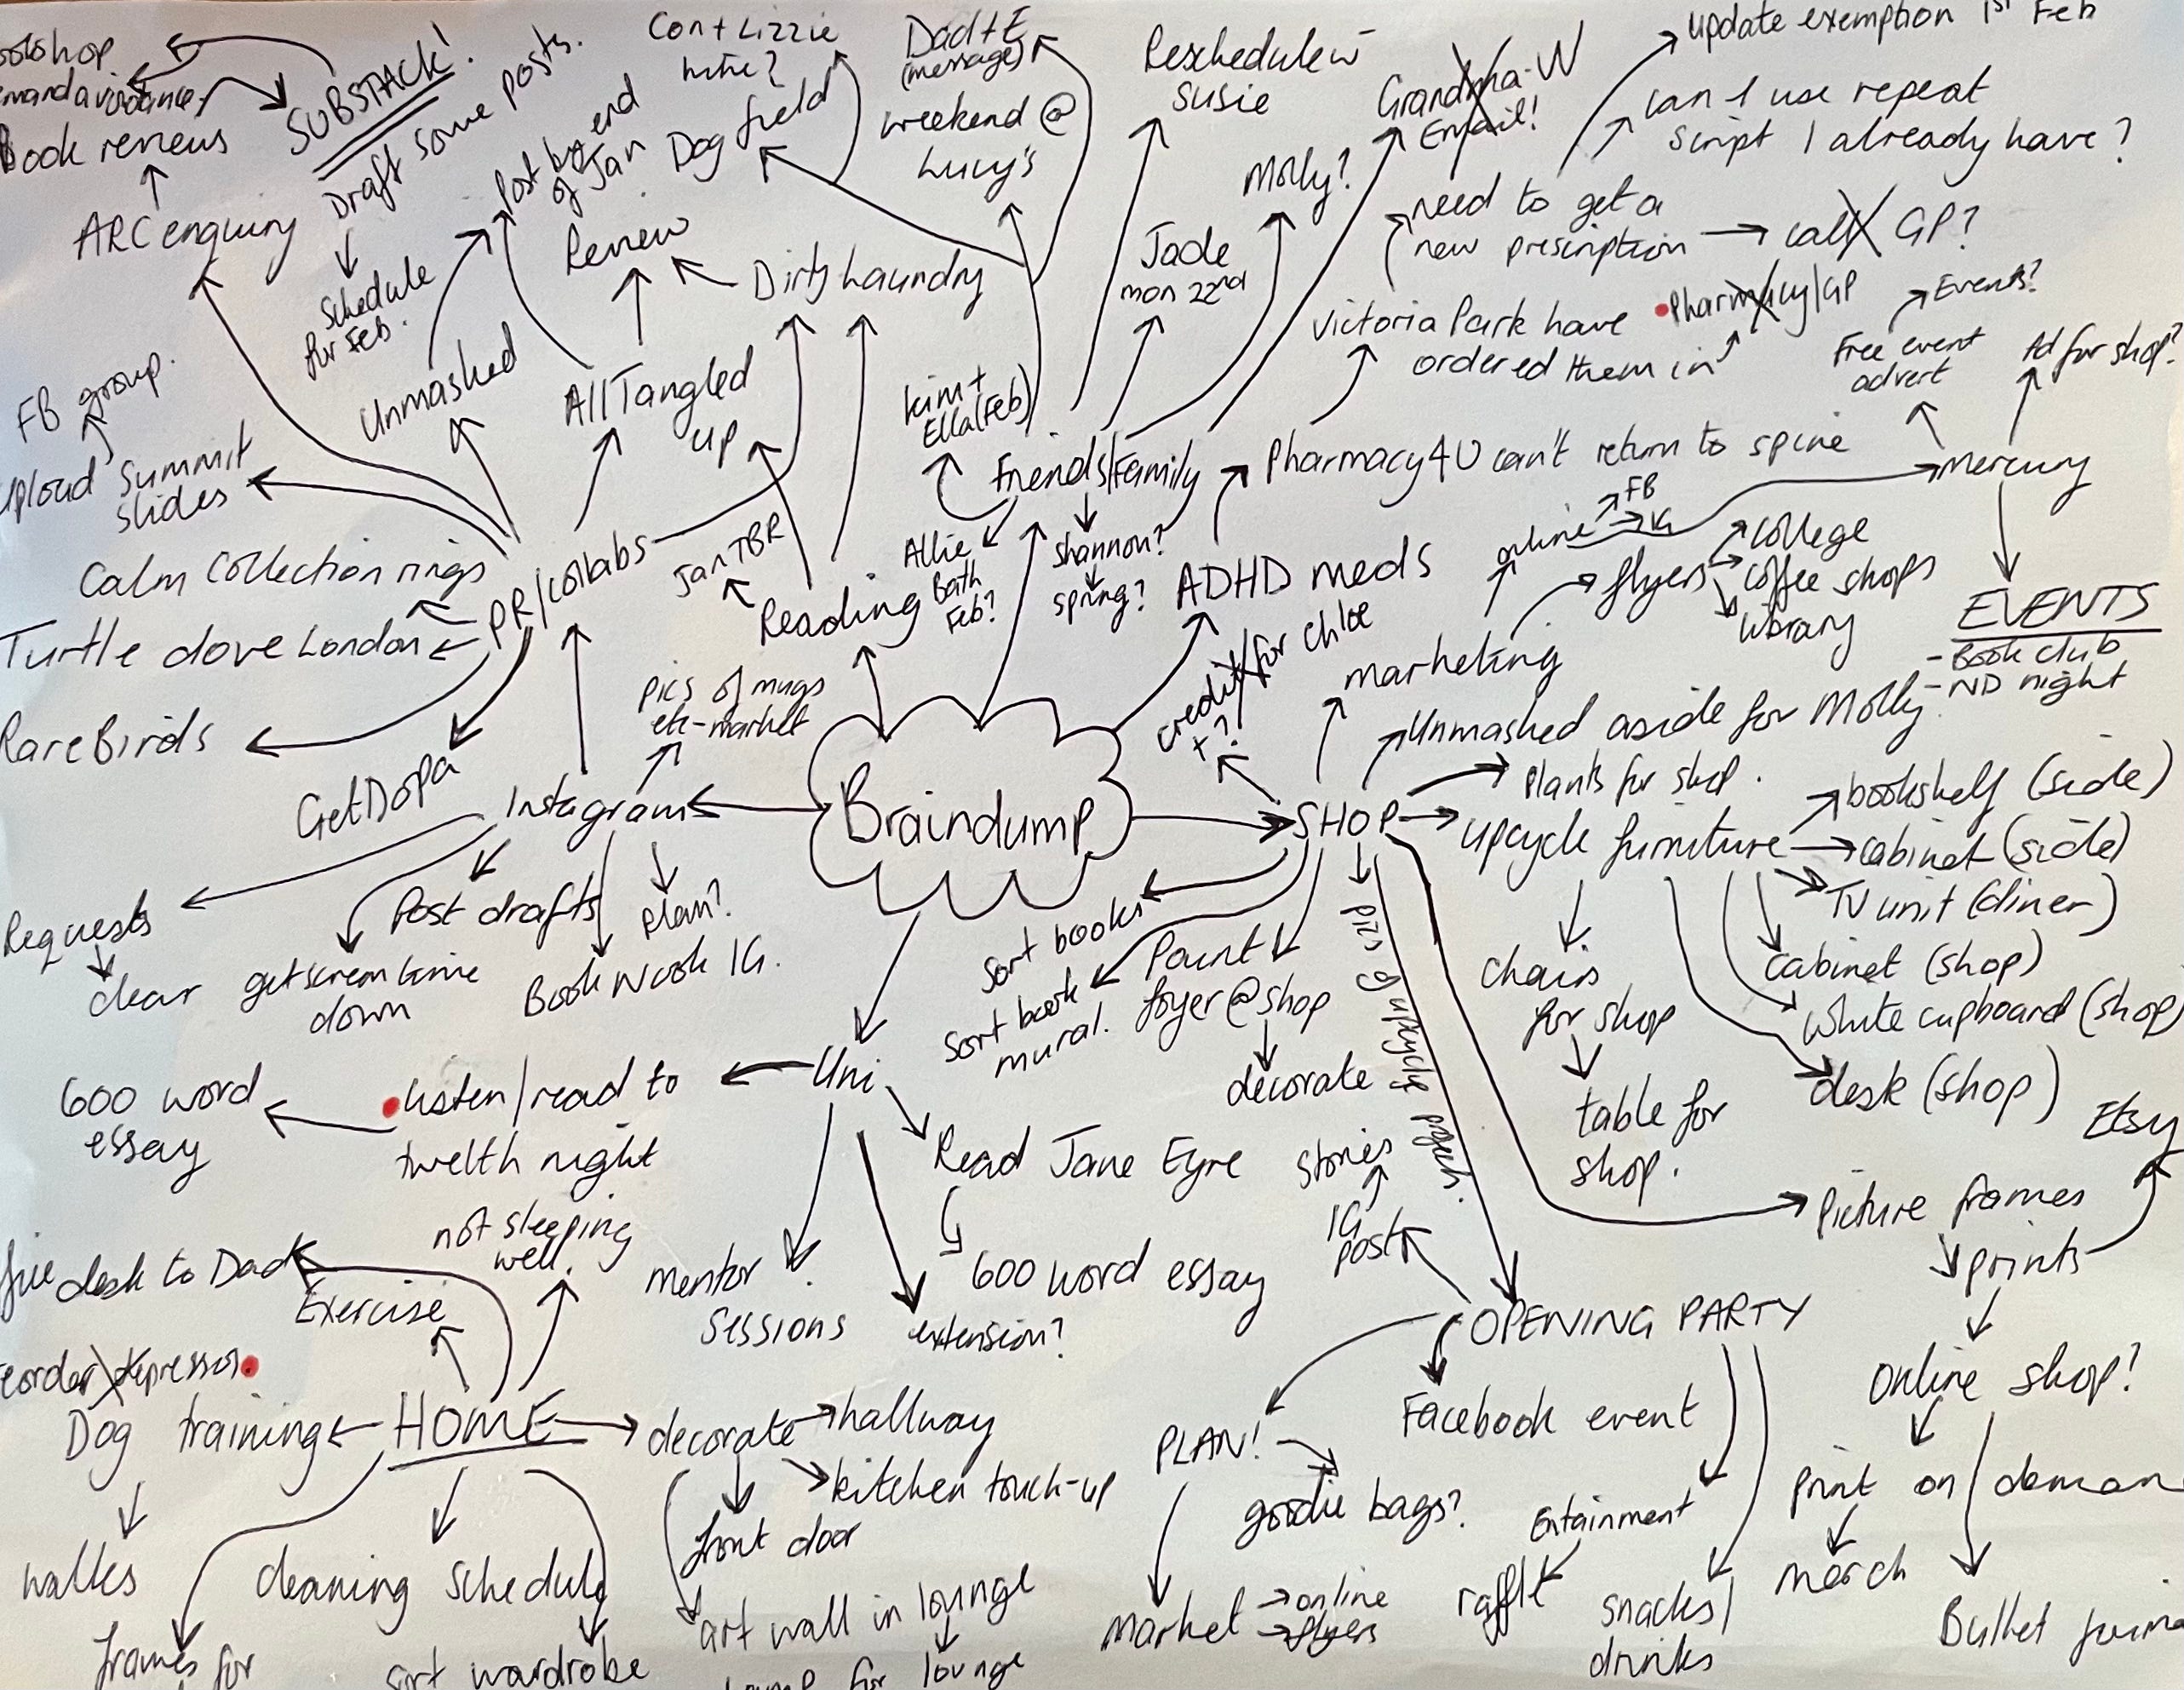 Book reviews
SUBSTACK!
Draft some posts.
Schedule
for Feb.
ARC enquiry
Post by end
of Jan
Review
Con + Lizzie
Dog field
Dad + E
(message)
weekend @
Lucy's
Reschedule w
Susie
Grandma W
Email!
Molly?
Jade
mon 22nd
update exemption 1st Feb
can I use repeat
Script I already have?
need to get a
new prescription
call GP?
Victoria Park have
ordered them in
Pharmacy/GP
Free event
advert
Events?
Ad for shop?
FB group.
upload Summit
slides
Unmasked
All Tangled
up
Dirty Laundry
Kim +
Ella (Feb)
Friends/Family
Pharmacy 4 U can't return to spine
mercury
Calm Collection rings
Turtle dove London
PR/collabs
Jan TBR
Reading
Allie
Bath
Feb?
Shannon?
spring?
ADHD meds
online
FB
IG
flyers
college
coffee shops
library
EVENTS
- Book club
- ND night
Rare Birds
GetDopa
Instagram
pics of mugs
etc - market
Braindump
credit for Chloe
+ ?
SHOP
marketing
Unmasked aside for Molly
Plants for shop.
upcycle furniture
bookshelf (side)
cabinet (side)
TV unit (diner)
cabinet (shop)
White cupboard (shop)
desk (shop)
chairs
for shop
table for
shop.
Requests
clear
Post drafts
get screen time
down
Plan?
Book Nook IG.
Sort books
Sort book
mural.
Paint
foyer @ shop
decorate
pics of upcycle projects.
Uni
listen/read to
twelth night
600 word
essay
Read Jane Eyre
600 word essay
mentor
sessions
extension?
stories
IG
post
Picture frames
prints
Etsy
Online shop?
print on deman
merch
Bullet
OPENING PARTY
PLAN!
goodie bags?
Facebook event
Entainment
raffle
snacks/
drinks
Market
online
flyers
desk to Dad
Exercise
not sleeping
well.
HOME
Dog training
walks
frames for
cleaning schedule
sort wardrobe
decorate
hallway
kitchen touch-up
front door
art wall in lounge
for lounge